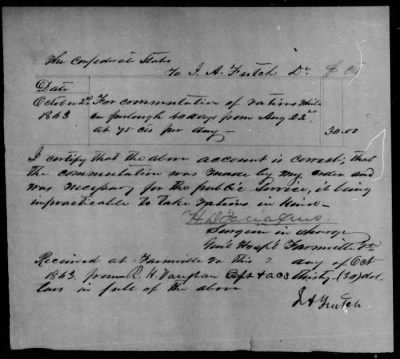 The Confederate States
To J. A. Futch Dr.
Date
October 2d For commutation of rations while
1863 on furlough 40 days from Aug 22d
at 75 cts per day — 30.00
I certify that the above account is correct; that
the commutation was made by my order and
was necessary for the public service, it being
impracticable to take rations in kind —
H D Taliaferro
Surgeon in charge
Gen'l Hosp'l Farmville Va
Received at Farmville Va this 2 day of Oct
1863 from R. H. Vaughan Capt & ACS thirty (30) dol-
lars in full of the above
J A Futch